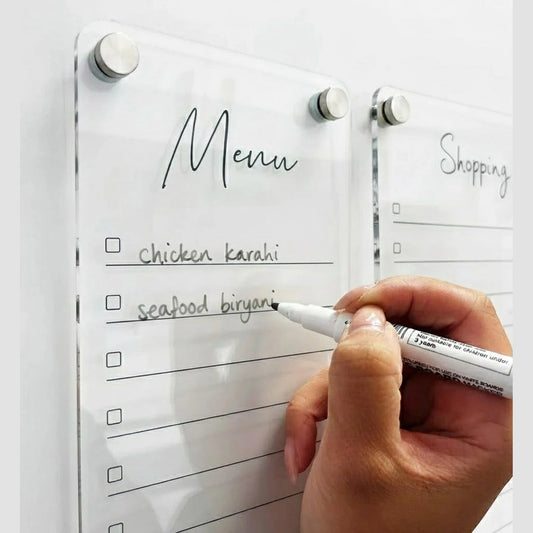 Menu
chicken karahi
seafood biryani
Shopping
Not suitable for children under
3 years